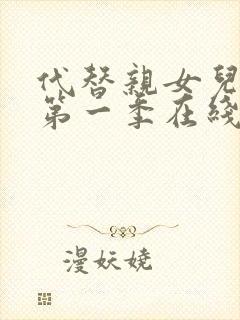 代替親女兒
第一季在綫
漫妖嬈